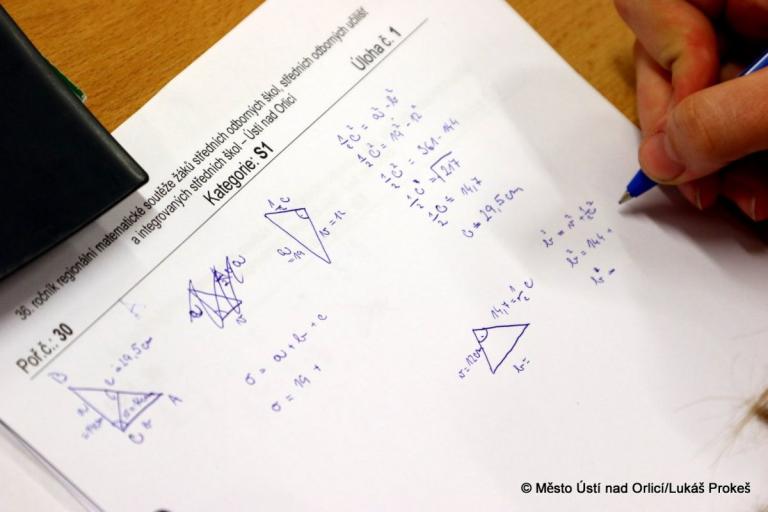 36. ročník regionální matematické soutěže žáků středních odborných škol, středních odborných učilišť
a integrovaných středních škol – Ústí nad Orlicí
Kategorie: S1
Úloha č. 1
Poř.č.: 30
½c² = a² - v²
½c² = 19² - 12²
½c² = 361 - 144
½c² = √217
½c = 14,7
c = 29,5 cm
½c
v = 12
a = 19
v² = v² + ½c²
b² = 144 +
b² =
14,7 = ½c
v = 12cm
b =
o = a + b + c
o = 19 +
B
c = 29,5cm
A
C
© Město Ústí nad Orlicí/Lukáš Prokeš